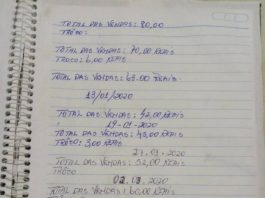 TOTAL DAS VENDAS: 80,00
TROCO:
TOTAL DAS VENDAS: 70,00 REAIS
TROCO: 6,00 REAIS
TOTAL DAS VENDAS: 63.00 REAIS
13/01/2020
TOTAL DAS VENDAS: 42,00 REAIS
19-01-2020
TOTAL DAS VENDAS: 43,00 REAIS
TROCO: 3,00 REAIS
27-01-2020
TOTAL DAS VENDAS: 52,00 REAIS
TROCO
2020
TOTAL DAS VENDAS: 60,00 REAIS